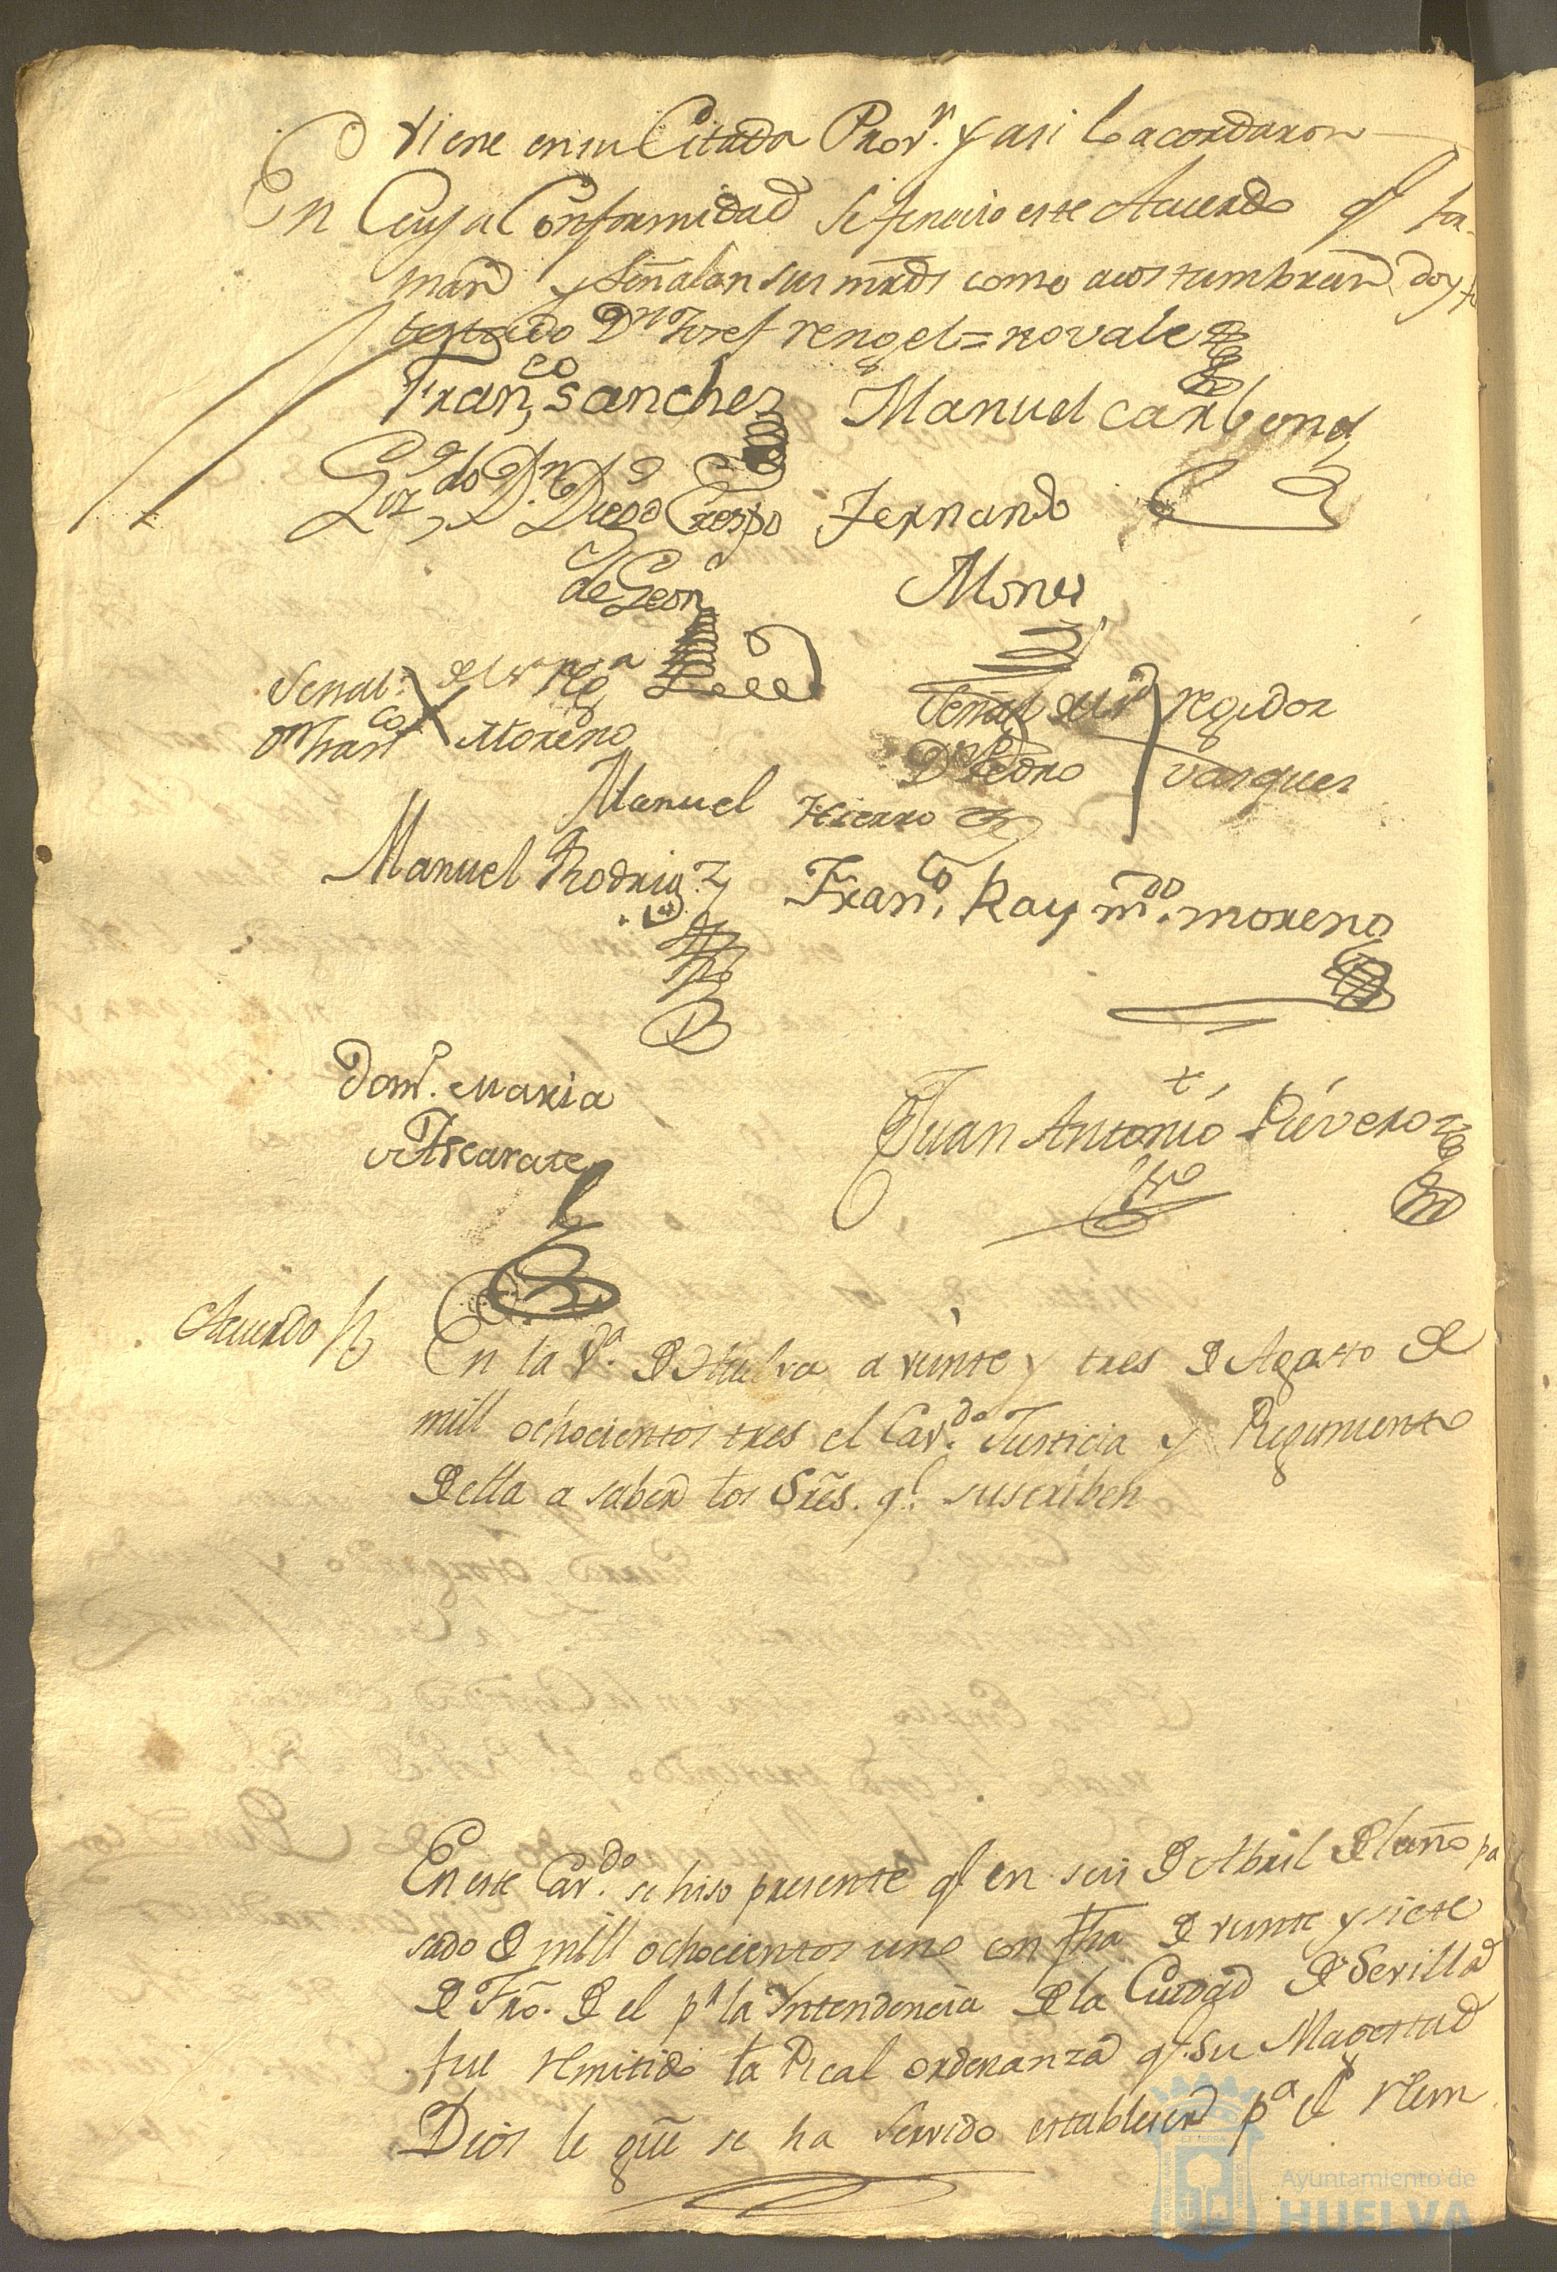 viene en su Citada Prov.n y asi lo acordaron
En Cuya Conformidad se fenecio este Acuerdo q.e for-
man y Señalan sus mrds como acostumbran doy fe
testado Dn Josef rengel = no vale
Fran.co Sanchez Manuel Carbonel
Liz.do D.n Diego Crespo Fernando
de Leon Mones
Señal del Sr Reg.r Señal del Sr regidor
Dn Franco Moreno Dn Pedro Vasquez
Manuel Hierro
Manuel Rodrig.z Fran.co Raym.do moreno
Dom.o Maria Juan Antonio Rivero
Ascarate
Acuerdo En la V.a de Huelva a veinte y tres de Agosto de
mill ochocientos tres el Cav.do Justicia y Regimiento
de ella a saber los Sres. q.e suscriben
En este Cav.do se hiso presente q.e en seis de Abril del año pa
sado de mill ochocientos uno con fha de veinte y siete
de Fro. de el p.r la Yntendencia de la Ciudad de Sevilla
fue remitida la Real ordenanza q.e Su Magestad
Dios le gue se ha servido establecer p.a el Reem
Ayuntamiento de
HUELVA